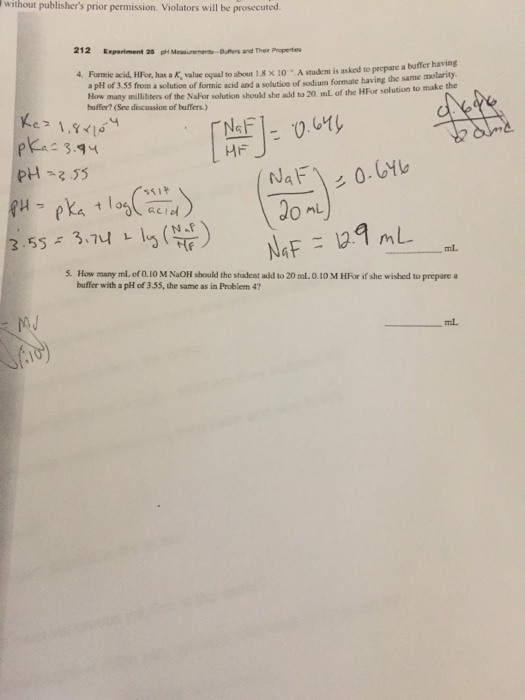 without publisher's prior permission. Violators will be prosecuted.
212 Experiment 25 pH Measurements—Buffers and Their Properties
4. Formic acid, HFor, has a Ka value equal to about 1.8 × 10 . A student is asked to prepare a buffer having
a pH of 3.55 from a solution of formic acid and a solution of sodium formate having the same molarity.
How many milliliters of the NaFor solution should she add to 20. mL of the HFor solution to make the
buffer? (See discussion of buffers.)
Ka = 1.8x10^-4
pKa = 3.94
pH = 3.55
pH = pKa + log(salt/acid)
3.55 = 3.74 + log(NaF/HF)
[NaF/HF] = 0.646
(NaF/20 mL) = 0.646
NaF = 12.9 mL
mL
5. How many mL of 0.10 M NaOH should the student add to 20 mL 0.10 M HFor if she wished to prepare a
buffer with a pH of 3.55, the same as in Problem 4?
mL
(.10)